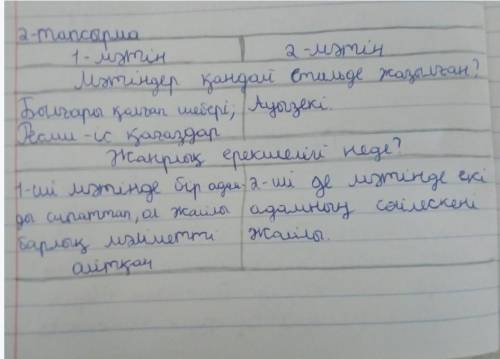 2-тапсырма
1-мәтін 2-мәтін
Мәтіндер қандай стильде жазылған?
Былғары қалған шебері, Ауызекі.
Ресми-іс қағаздар
Жанрлық ерекшелігі неде?
1-ші мәтінде бір адам- 2-ші де мәтінде екі
ды сипаттап, ол жайлы адамның сөйлескені
барлық мәліметті жайлы.
айтқан